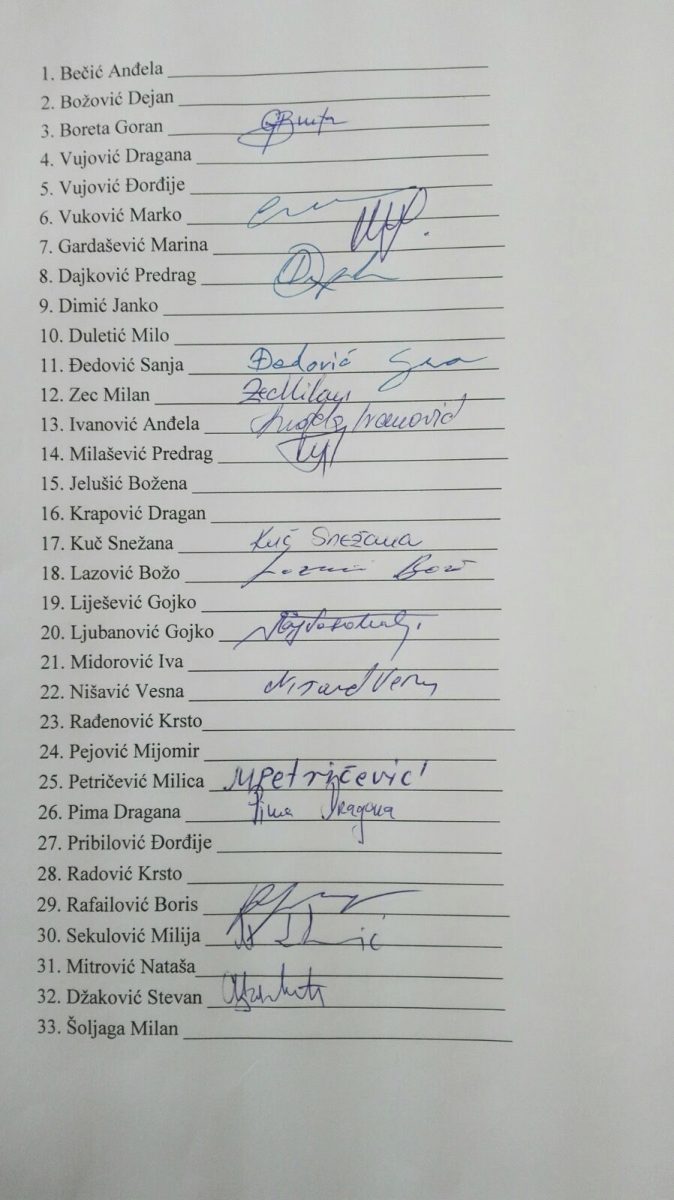 1. Bečić Anđela
2. Božović Dejan
3. Boreta Goran
4. Vujović Dragana
5. Vujović Đorđije
6. Vuković Marko
7. Gardašević Marina
8. Dajković Predrag
9. Dimić Janko
10. Duletić Milo
11. Đedović Sanja Đedović
12. Zec Milan Zec Milan
13. Ivanović Anđela Anđela Ivanović
14. Milašević Predrag
15. Jelušić Božena
16. Krapović Dragan
17. Kuč Snežana Kuč Snežana
18. Lazović Božo
19. Liješević Gojko
20. Ljubanović Gojko
21. Midorović Iva
22. Nišavić Vesna
23. Rađenović Krsto
24. Pejović Mijomir
25. Petričević Milica MPetričević
26. Pima Dragana Pima Dragana
27. Pribilović Đorđije
28. Radović Krsto
29. Rafailović Boris
30. Sekulović Milija
31. Mitrović Nataša
32. Džaković Stevan
33. Šoljaga Milan